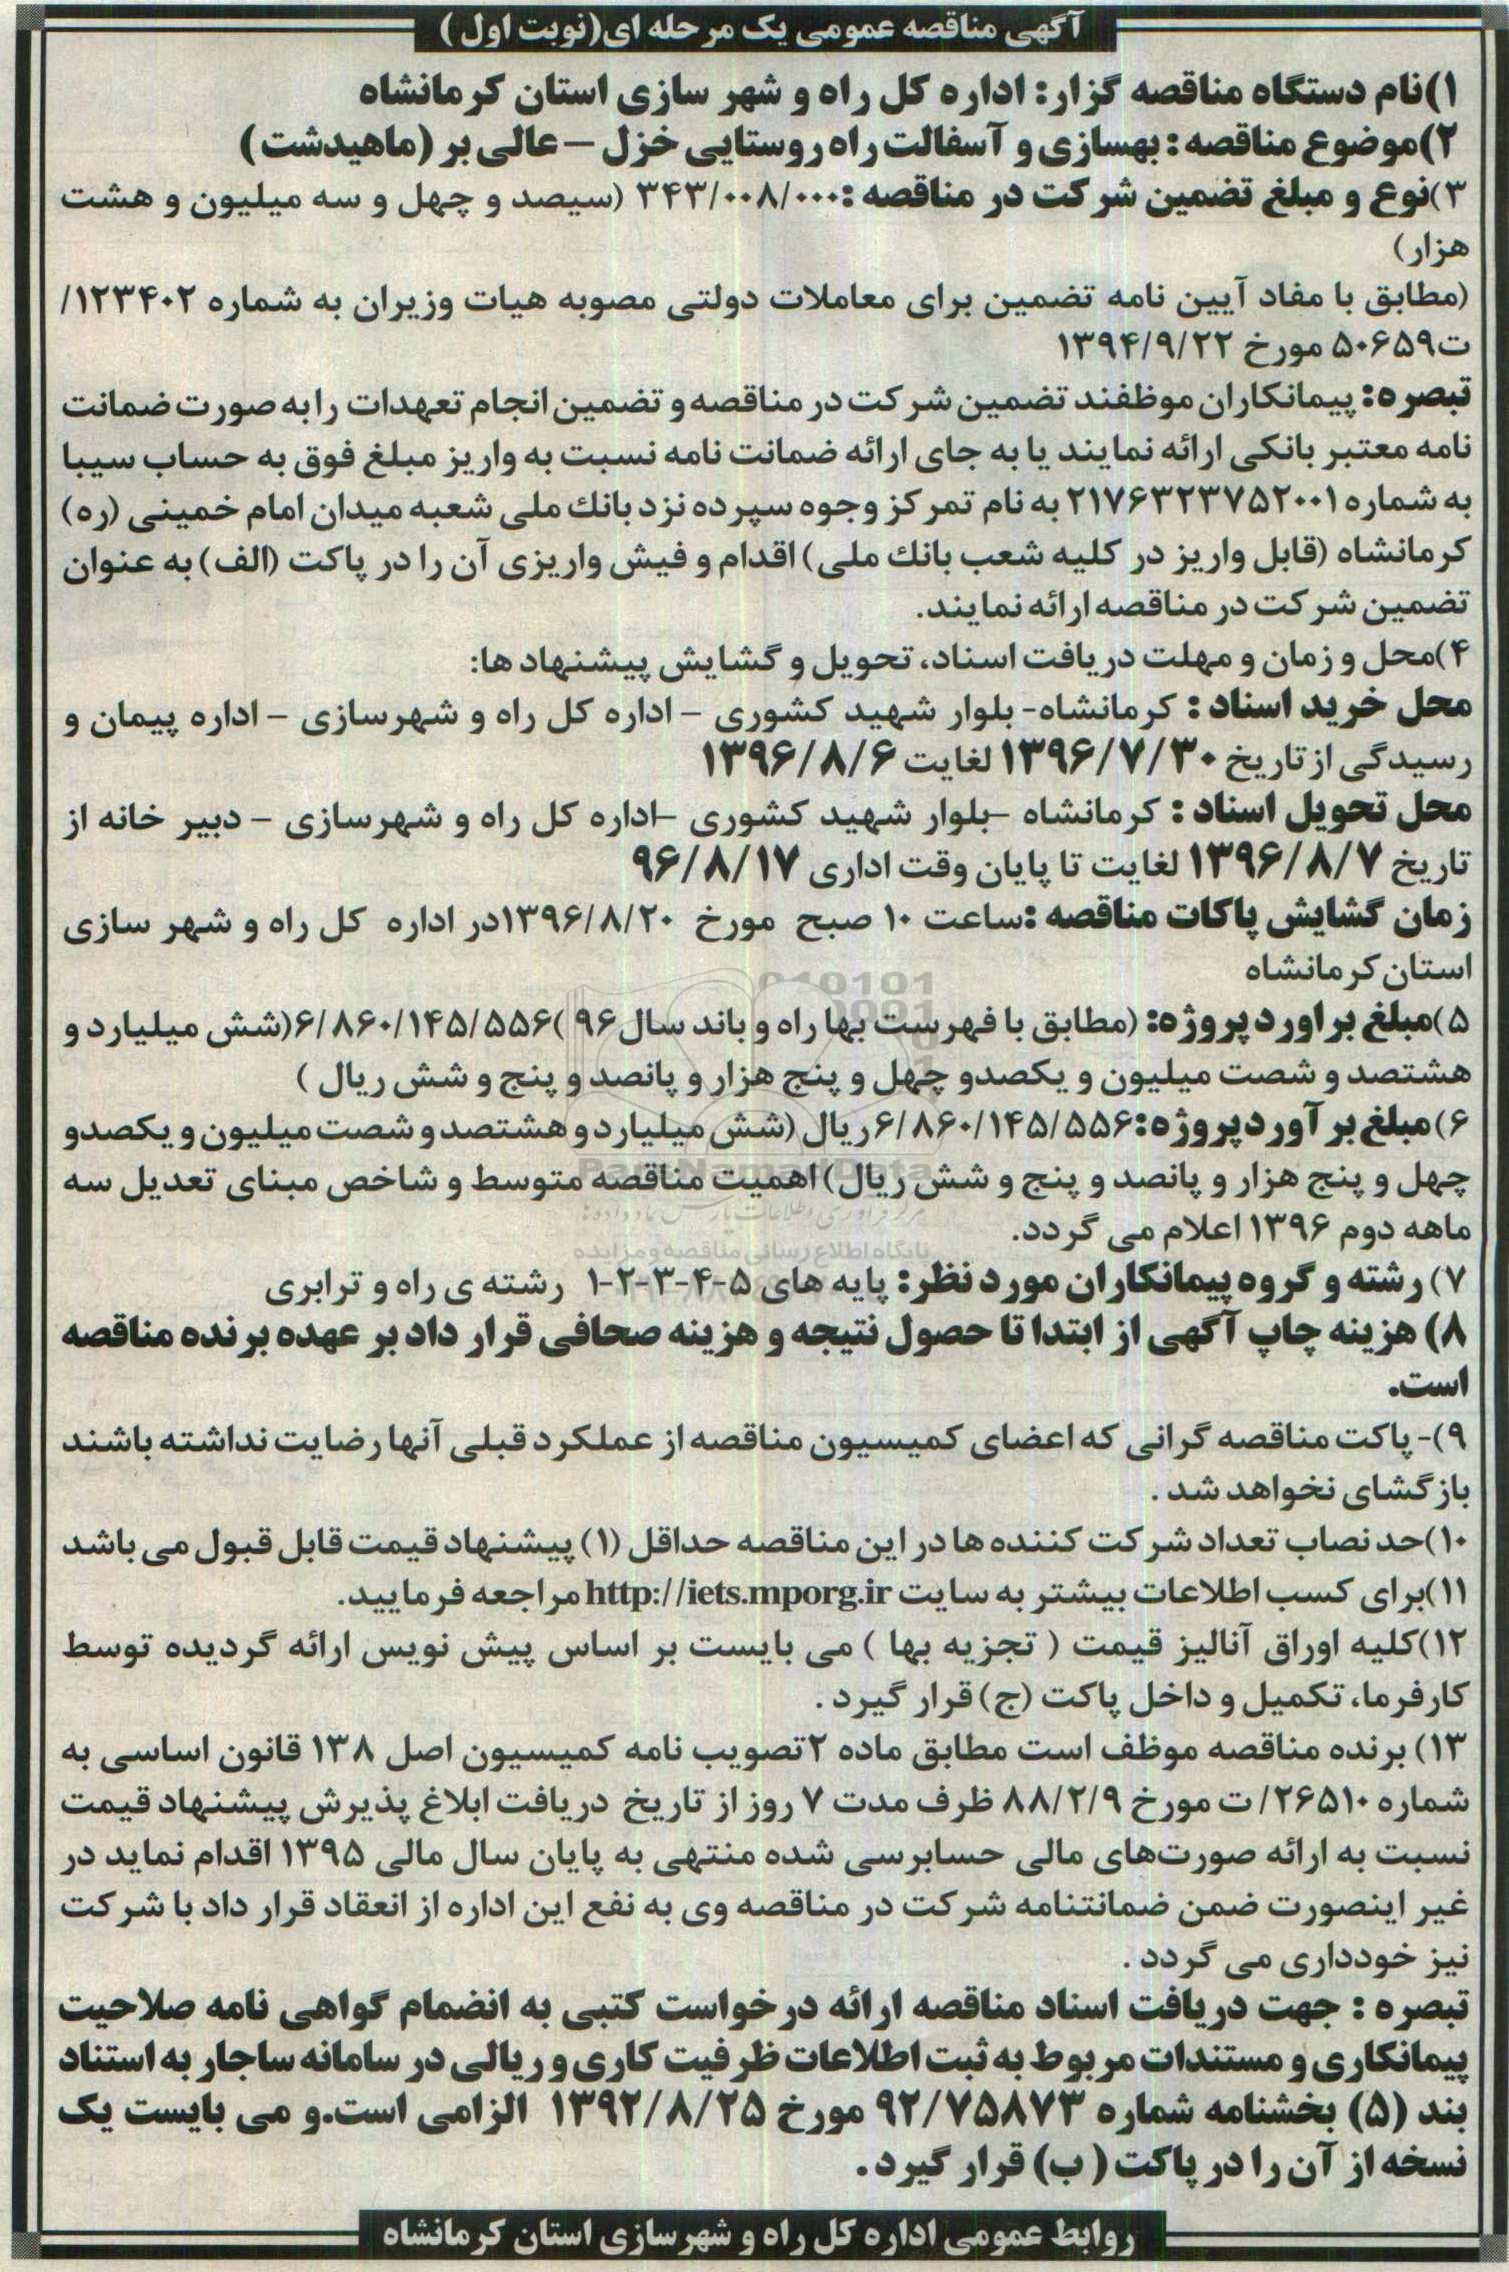 آگهی مناقصه عمومی یک مرحله ای(نوبت اول )
۱)نام دستگاه مناقصه گزار: اداره کل راه و شهر سازی استان کرمانشاه
۲)موضوع مناقصه : بهسازی و آسفالت راه روستایی خزل – عالی بر (ماهیدشت)
۳)نوع و مبلغ تضمین شرکت در مناقصه :۳۴۳/۰۰۸/۰۰۰ (سیصد و چهل و سه میلیون و هشت
هزار)
(مطابق با مفاد آیین نامه تضمین برای معاملات دولتی مصوبه هیات وزیران به شماره ۱۲۳۴۰۲/
ت۵۰۶۵۹ مورخ ۱۳۹۴/۹/۲۲
تبصره: پیمانکاران موظفند تضمین شرکت در مناقصه و تضمین انجام تعهدات را به صورت ضمانت
نامه معتبر بانکی ارائه نمایند یا به جای ارائه ضمانت نامه نسبت به واریز مبلغ فوق به حساب سیبا
به شماره ۲۱۷۶۳۲۳۷۵۲۰۰۱ به نام تمرکز وجوه سپرده نزد بانك ملی شعبه میدان امام خمینی (ره)
کرمانشاه (قابل واریز در کلیه شعب بانك ملی) اقدام و فیش واریزی آن را در پاکت (الف) به عنوان
تضمین شرکت در مناقصه ارائه نمایند.
۴)محل و زمان و مهلت دریافت اسناد، تحویل و گشایش پیشنهاد ها:
محل خرید اسناد : کرمانشاه- بلوار شهید کشوری - اداره کل راه و شهرسازی - اداره پیمان و
رسیدگی از تاریخ ۱۳۹۶/۷/۳۰ لغایت ۱۳۹۶/۸/۶
محل تحویل اسناد : کرمانشاه -بلوار شهید کشوری -اداره کل راه و شهرسازی - دبیر خانه از
تاریخ ۱۳۹۶/۸/۷ لغایت تا پایان وقت اداری ۹۶/۸/۱۷
زمان گشایش پاکات مناقصه :ساعت ۱۰ صبح مورخ ۱۳۹۶/۸/۲۰در اداره کل راه و شهر سازی
استان کرمانشاه
۵)مبلغ براورد پروژه: (مطابق با فهرست بها راه و باند سال ۹۶ )۶/۸۶۰/۱۴۵/۵۵۶(شش میلیارد و
هشتصد و شصت میلیون و یکصدو چهل و پنج هزار و پانصد و پنج و شش ریال )
۶) مبلغ بر آورد پروژه:۶/۸۶۰/۱۴۵/۵۵۶ ریال (شش میلیارد و هشتصد و شصت میلیون و یکصدو
چهل و پنج هزار و پانصد و پنج و شش ریال) اهمیت مناقصه متوسط و شاخص مبنای تعدیل سه
ماهه دوم ۱۳۹۶ اعلام می گردد.
۷) رشته و گروه پیمانکاران مورد نظر: پایه های ۵-۴-۳-۲-۱ رشته ی راه و ترابری
۸) هزینه چاپ آگهی از ابتدا تا حصول نتیجه و هزینه صحافی قرار داد بر عهده برنده مناقصه
است.
۹)- پاکت مناقصه گرانی که اعضای کمیسیون مناقصه از عملکرد قبلی آنها رضایت نداشته باشند
بازگشای نخواهد شد .
۱۰)حد نصاب تعداد شرکت کننده ها در این مناقصه حداقل (۱) پیشنهاد قیمت قابل قبول می باشد
۱۱)برای کسب اطلاعات بیشتر به سایت http://iets.mporg.ir مراجعه فرمایید.
۱۲)کلیه اوراق آنالیز قیمت ( تجزیه بها ) می بایست بر اساس پیش نویس ارائه گردیده توسط
کارفرما، تکمیل و داخل پاکت (ج) قرار گیرد .
۱۳) برنده مناقصه موظف است مطابق ماده ۲تصویب نامه کمیسیون اصل ۱۳۸ قانون اساسی به
شماره ۲۶۵۱۰/ ت مورخ ۸۸/۲/۹ ظرف مدت ۷ روز از تاریخ دریافت ابلاغ پذیرش پیشنهاد قیمت
نسبت به ارائه صورت‌های مالی حسابرسی شده منتهی به پایان سال مالی ۱۳۹۵ اقدام نماید در
غیر اینصورت ضمن ضمانتنامه شرکت در مناقصه وی به نفع این اداره از انعقاد قرار داد با شرکت
نیز خودداری می گردد .
تبصره : جهت دریافت اسناد مناقصه ارائه درخواست کتبی به انضمام گواهی نامه صلاحیت
پیمانکاری و مستندات مربوط به ثبت اطلاعات ظرفیت کاری و ریالی در سامانه ساجار به استناد
بند (۵) بخشنامه شماره ۹۲/۷۵۸۷۳ مورخ ۱۳۹۲/۸/۲۵ الزامی است.و می بایست یک
نسخه از آن را در پاکت ( ب) قرار گیرد .
روابط عمومی اداره کل راه و شهرسازی استان کرمانشاه